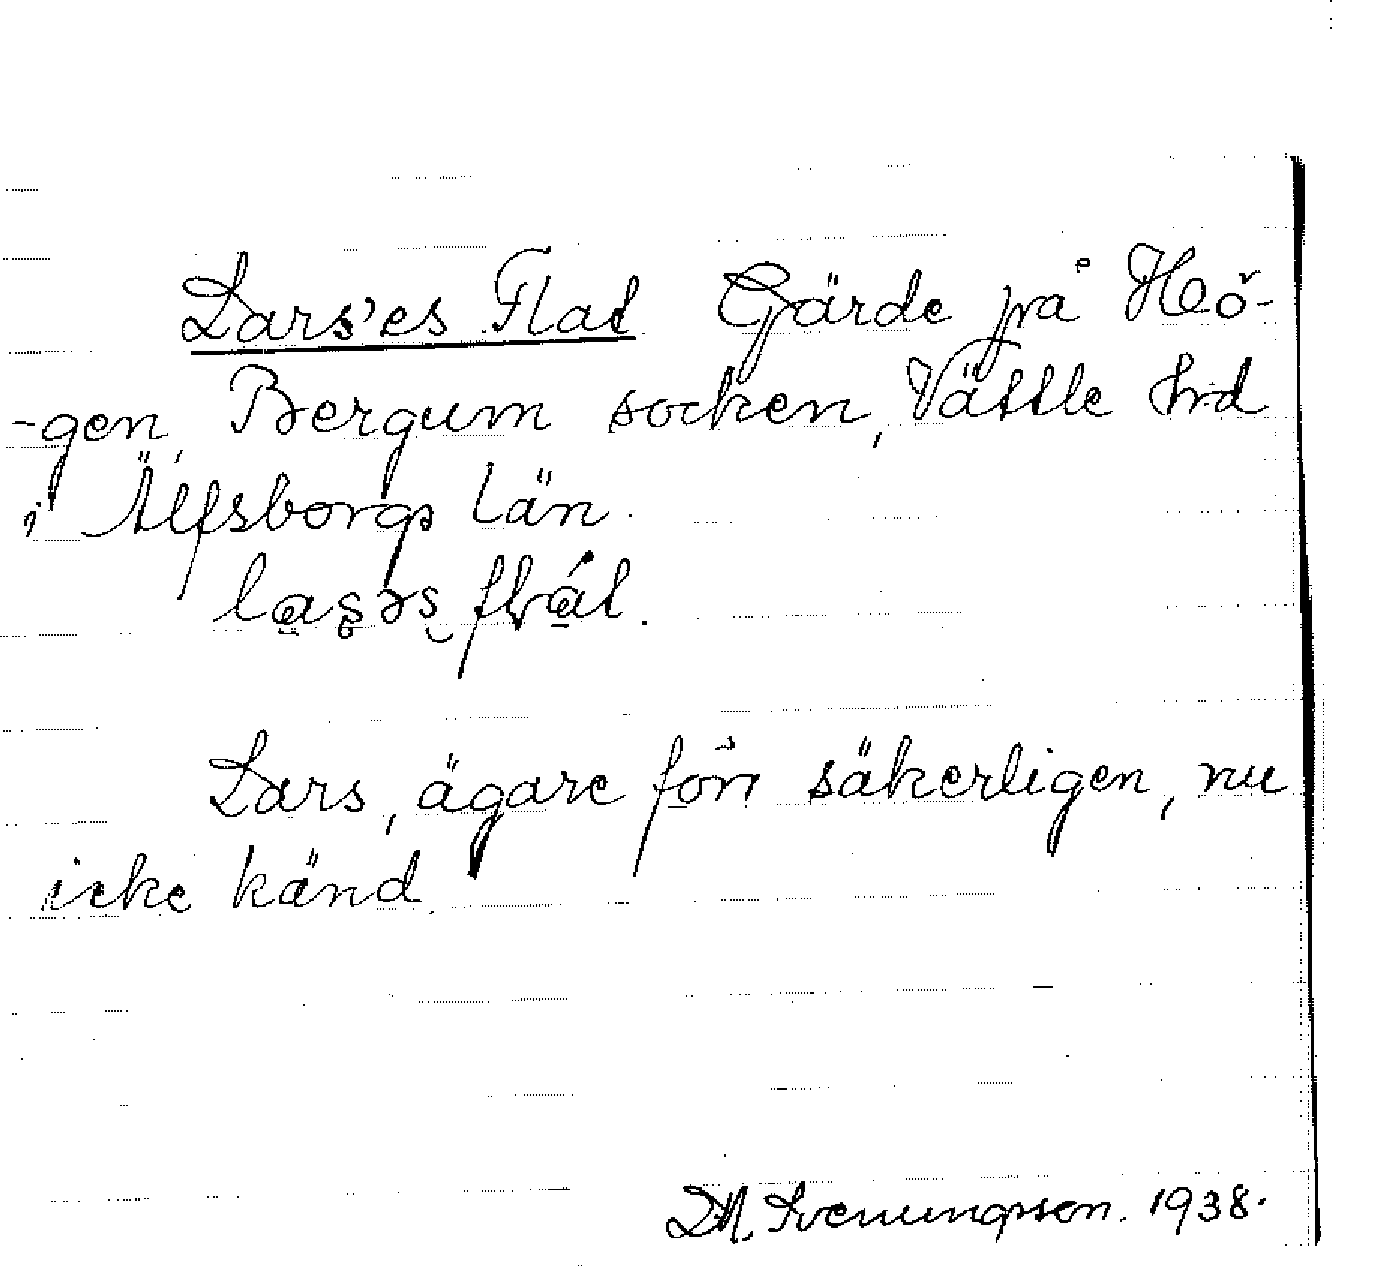 Lars'es Flat Gärde på Heö-
-gen, Bergum socken, Vättle hrd
i Älfsborgs län.
Lars, ägare förr säkerligen, nu
icke känd.
D.M. Svenungsson. 1938.